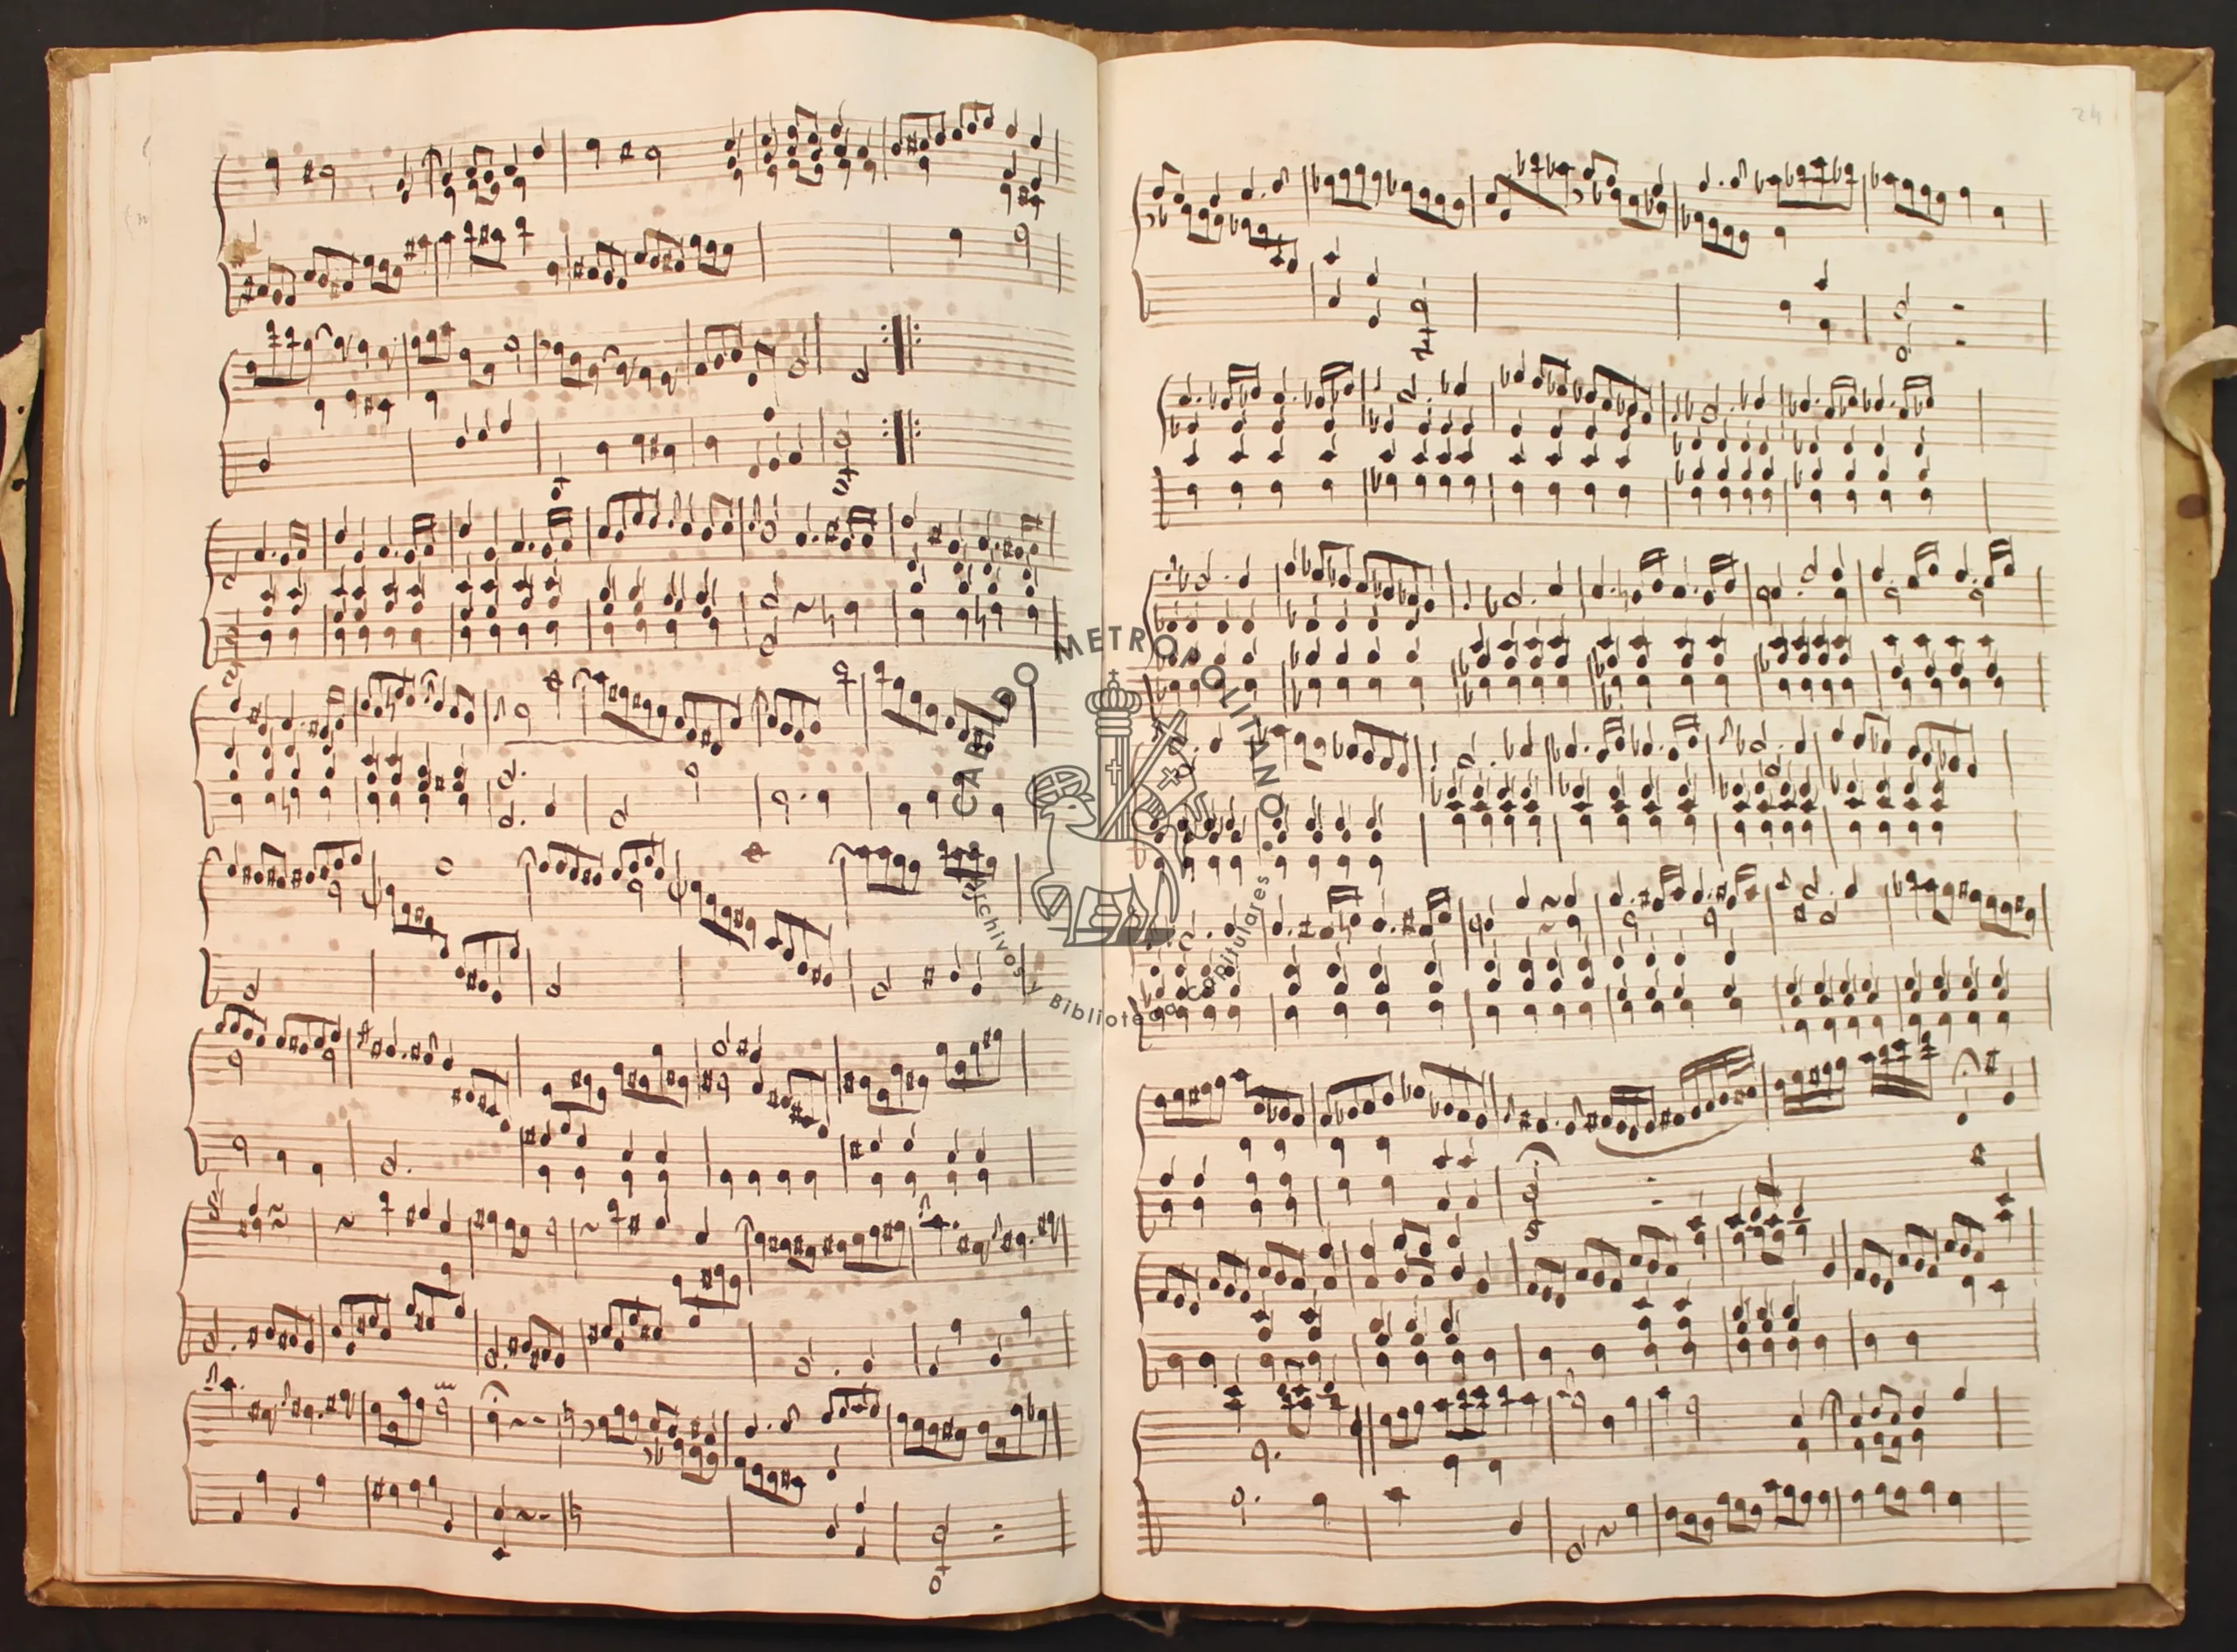 24
CABILDO METROPOLITANO
Archivos y Bibliotecas Capitulares